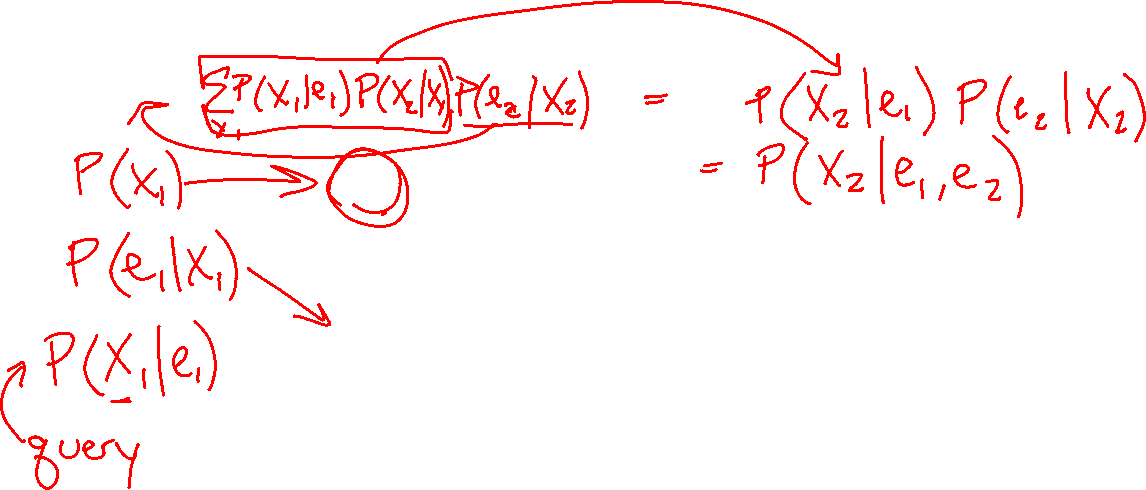 ∑ P(X₁|e₁) P(X₂|X₁) P(e₂|X₂) = P(X₂|e₁) P(e₂|X₂)
x₁
= P(X₂|e₁,e₂)
P(X₁)
P(e₁|X₁)
P(X₁|e₁)
query